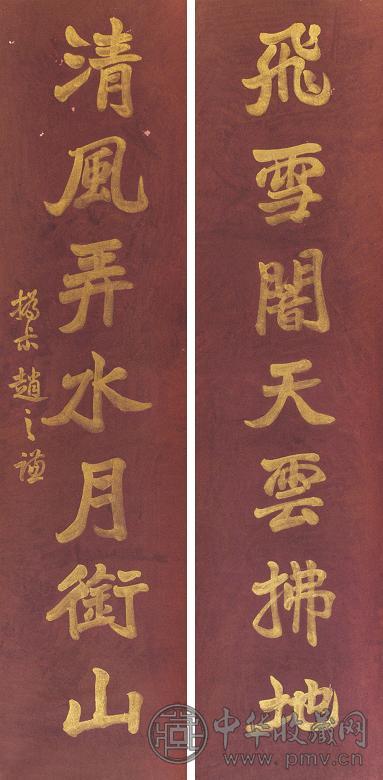 飛雪闇天雲拂地
清風弄水月銜山
撝叔趙之謙
中华收藏网
www.pmv.cn